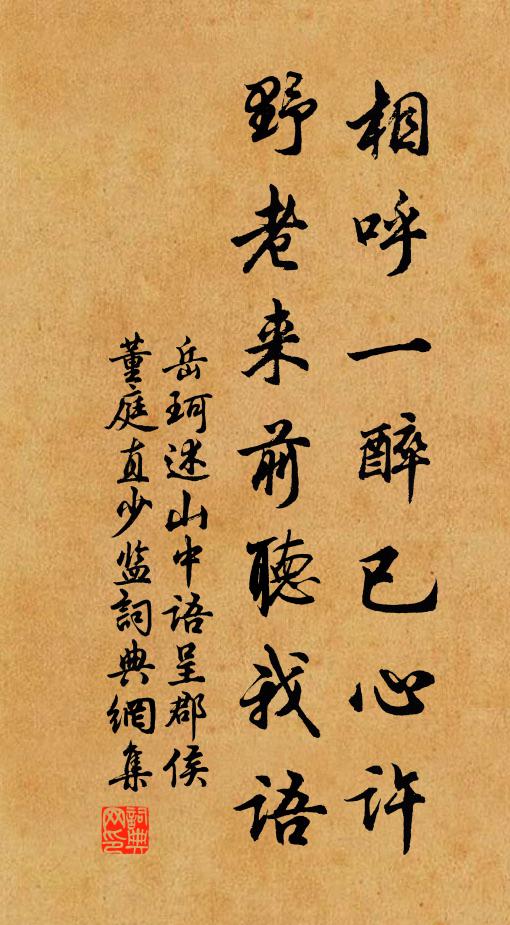 相呼一醉已心许
野老来前聽我语
岳珂述山中语呈郡侯
董庭直少监詞典網集
詞典网印